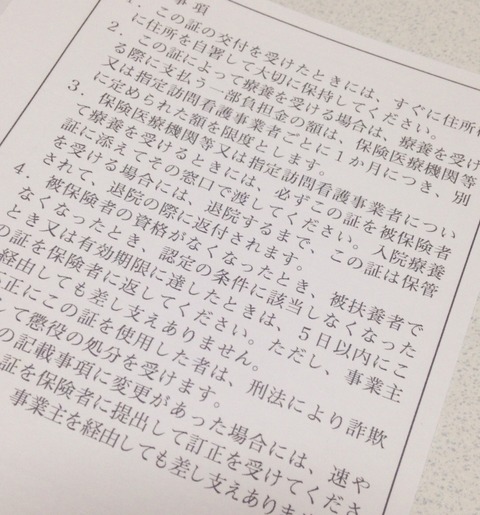 事項
1．この証の交付を受けたときには、すぐに住所
に住所を自署して大切に保持してください。
2．この証によって療養を受ける場合は、療養を受け
る際に支払う一部負担金の額は、保険医療機関等
又は指定訪問看護事業者ごとに1か月につき、別
に定められた額を限度とします。
3．保険医療機関等又は指定訪問看護事業者につい
て療養を受けるときには、必ずこの証を被保険者
証に添えてその窓口で渡してください。入院療養
を受ける場合には、退院するまで、この証は保管
されて、退院の際に返付されます。
4．被保険者の資格がなくなったとき、被扶養者で
なくなったとき、認定の条件に該当しなくなった
とき又は有効期限に達したときは、5日以内にこ
の証を保険者に返してください。ただし、事業主
経由しても差し支えありません。
正にこの証を使用した者は、刑法により詐欺
して懲役の処分を受けます。
の記載事項に変更があった場合には、速や
証を保険者に提出して訂正を受けてくださ
事業主を経由しても差し支えありま